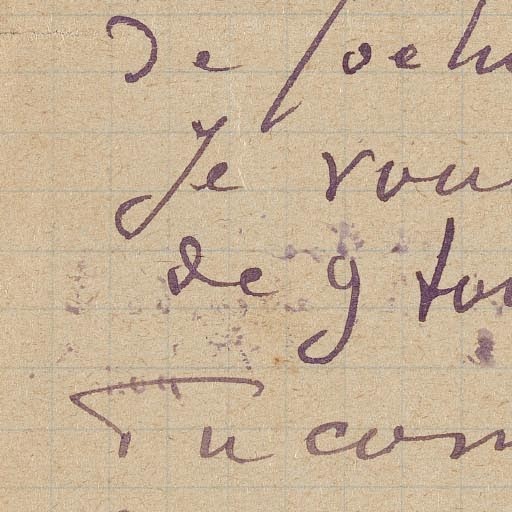 De
Je vou
de 9 tou
Tu com